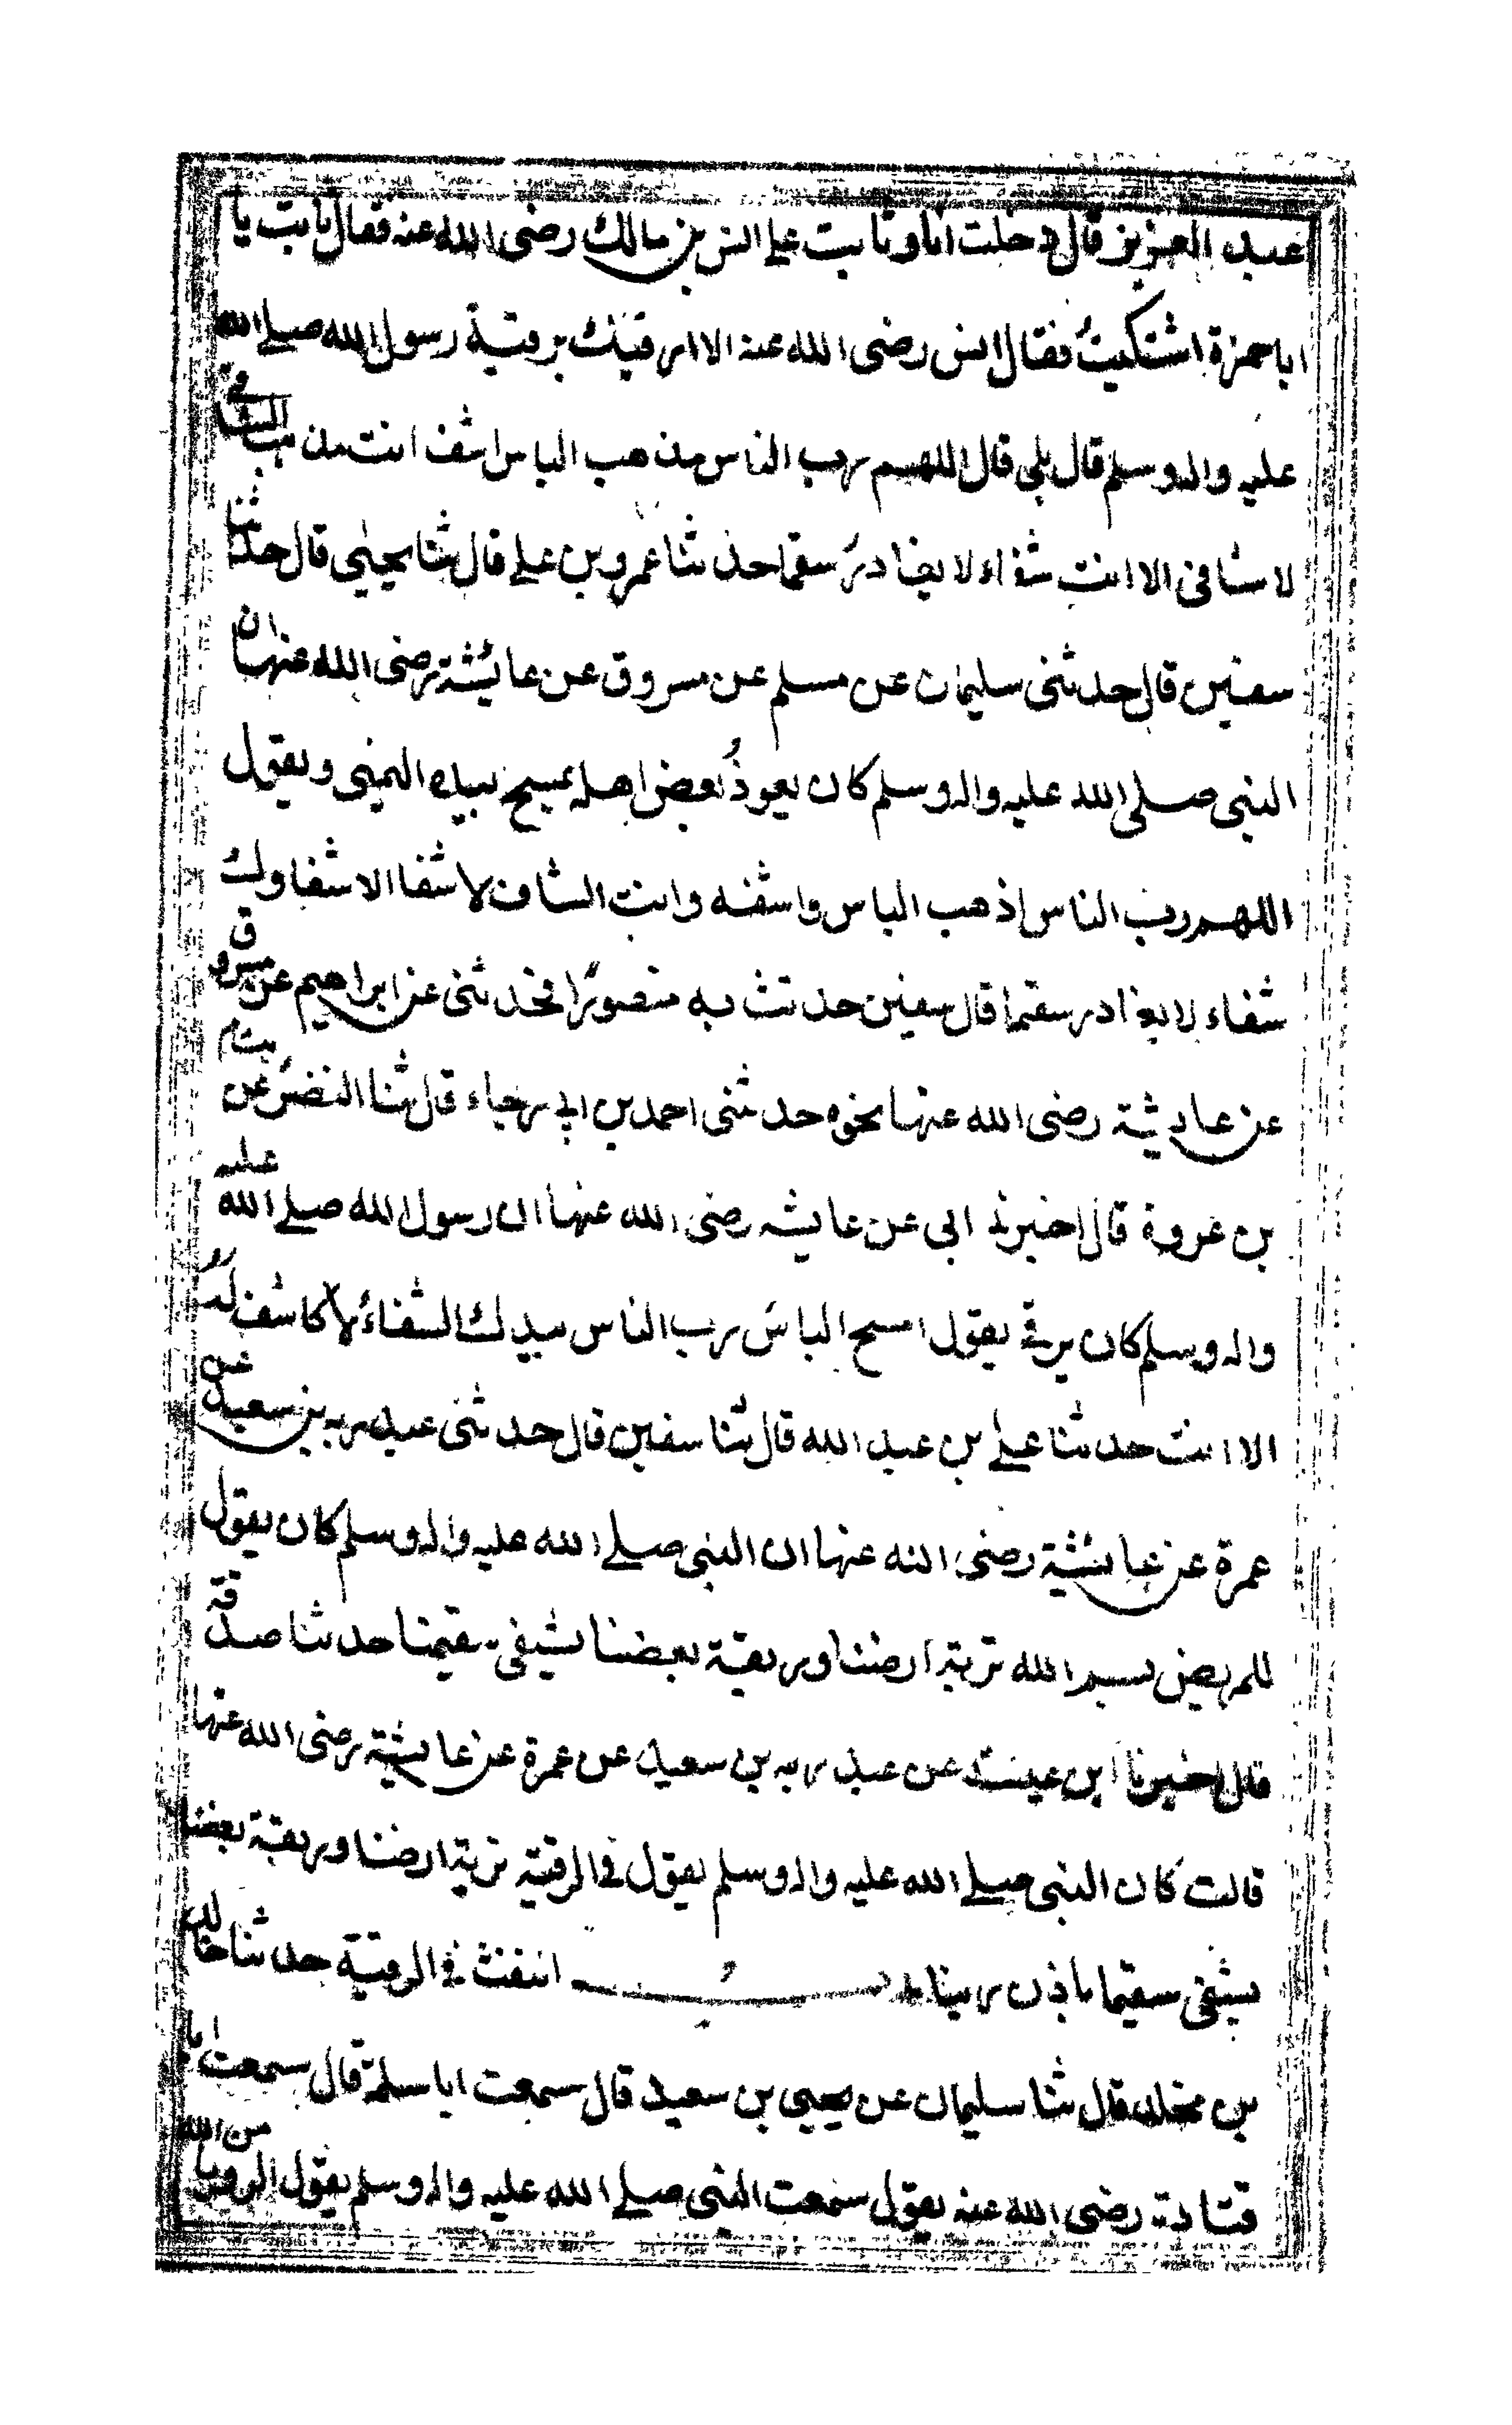 عبد العزيز قال دخلت انا وثابت على انس بن مالك رضى الله عنه فقال ثابت يا
ابا حمزة اشتكيت فقال انس رضى الله عنه الا ارقيك برقية رسول الله صلى الله
عليه واله وسلم قال بلى قال اللهم رب الناس مذهب الباس اشف انت الشافى
لا شافى الا انت شفاء لا يغادر سقما حدثنا عمرو بن على قال ثنا يحيى قال حدثنا
سفين قال حدثنى سليمان عن مسلم عن مسروق عن عايشة رضى الله عنها ان
النبى صلى الله عليه واله وسلم كان يعوذ بعض اهله يمسح بيده اليمنى ويقول
اللهم رب الناس اذهب الباس واشفه وانت الشاف لا شفا الا شفاوك
شفاء لا يغادر سقما قال سفين حدثت به منصورا فحدثنى عن ابراهيم عن مسروق
عن عايشة رضى الله عنها نحوه حدثنى احمد بن ابى رجاء قال ثنا النضر عن هشام
بن عروة قال اخبرنى ابى عن عايشه رضى الله عنها ان رسول الله صلى الله عليه
واله وسلم كان يرقى يقول امسح الباس رب الناس بيدك الشفاء لا كاشف له
الا انت حدثنا على بن عبد الله قال ثنا سفين قال حدثنى عبد ربه بن سعيد عن
عمرة عن عايشة رضى الله عنها ان النبى صلى الله عليه واله وسلم كان يقول
للمريض بسم الله تربة ارضنا وريقة بعضنا يشفى سقيمنا حدثنا صدقة
قال اخبرنا ابن عيينة عن عبد ربه بن سعيد عن عمرة عن عايشة رضى الله عنها
قالت كان النبى صلى الله عليه واله وسلم يقول فى الرقية تربة ارضنا وريقة بعضنا
يشفى سقيمنا باذن ربنا باب النفث فى الرقية حدثنا خالد
بن مخلد قال ثنا سليمان عن يحيى بن سعيد قال سمعت ابا سلمة قال سمعت ابا
قتادة رضى الله عنه يقول سمعت النبى صلى الله عليه واله وسلم يقول الرويا من الله